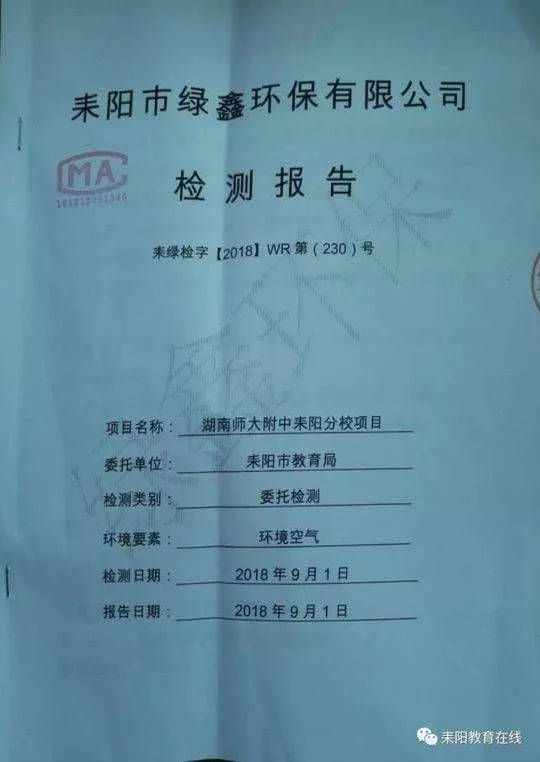 耒阳市绿鑫环保有限公司
MA
检测报告
耒绿检字【2018】WR 第（230）号
项目名称：湖南师大附中耒阳分校项目
委托单位：耒阳市教育局
检测类别：委托检测
环境要素：环境空气
检测日期：2018 年 9 月 1 日
报告日期：2018 年 9 月 1 日
耒阳教育在线